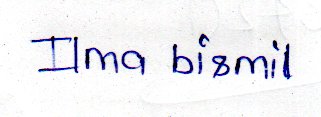 Ilma bismil